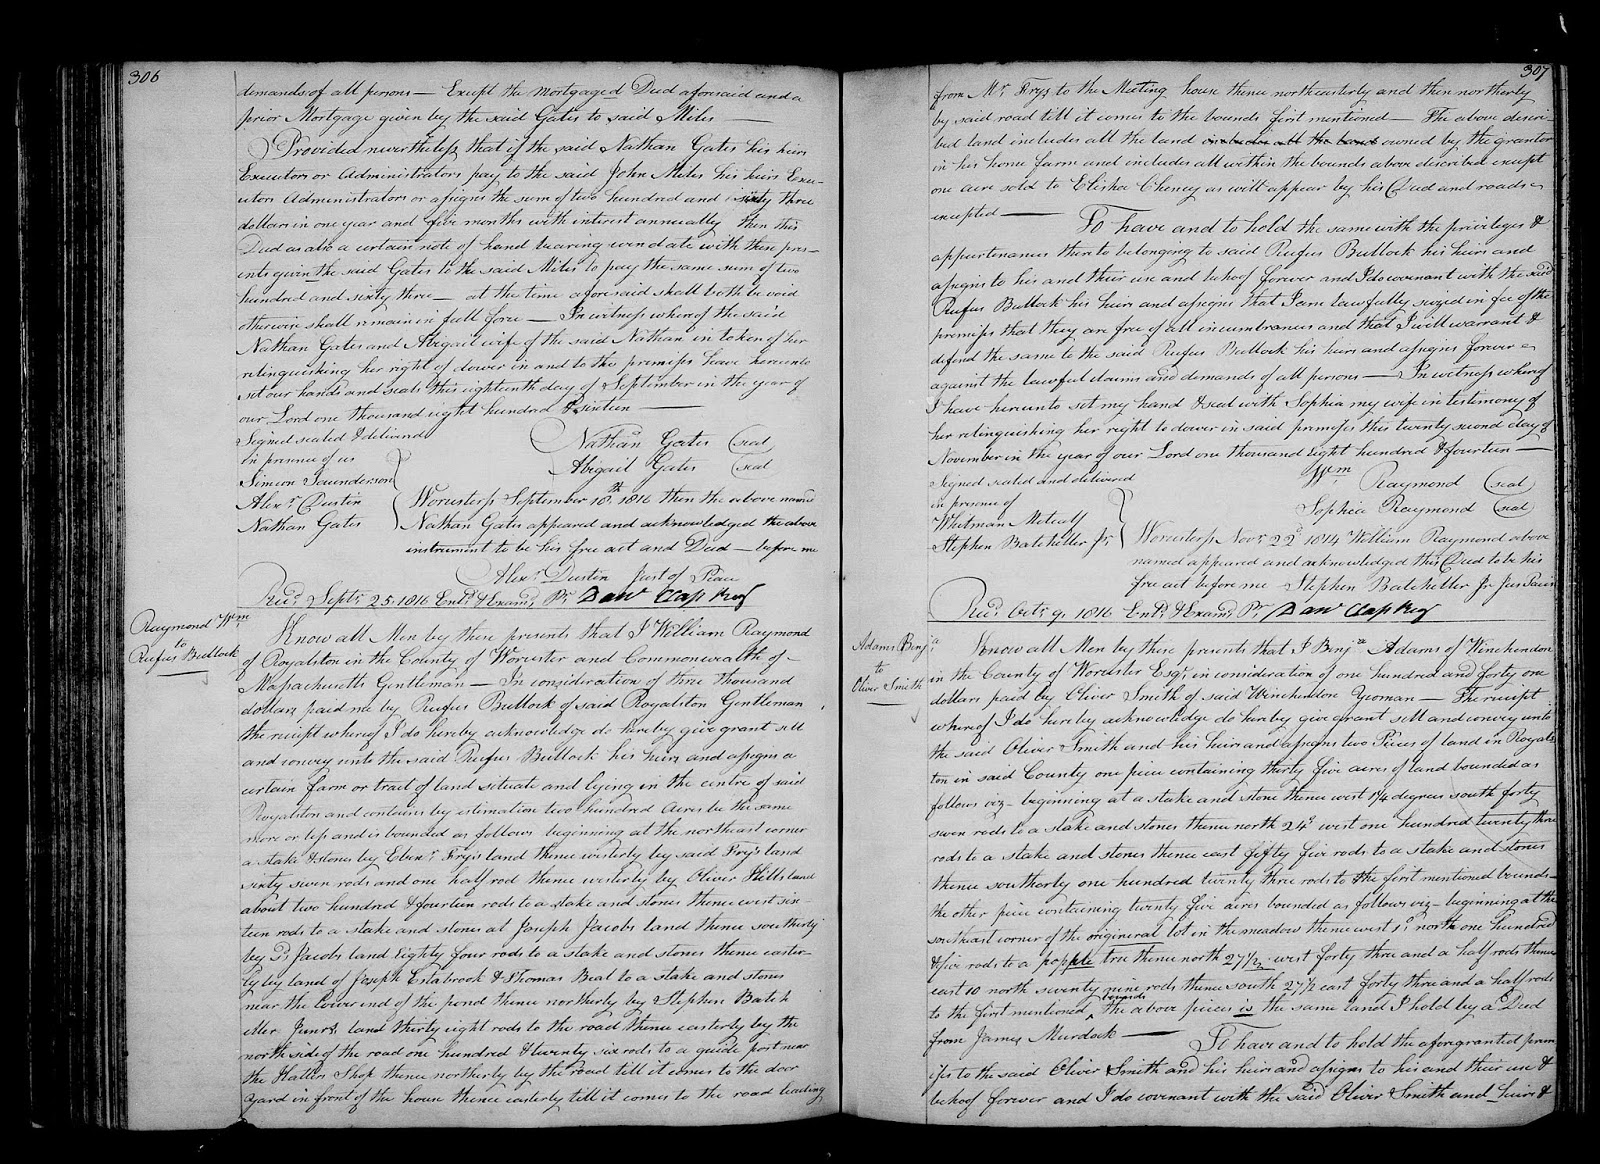 306
demands of all persons — Except the Mortgaged Deed aforesaid and a
prior Mortgage given by the said Gates to said Miles —
Provided nevertheless that if the said Nathan Gates his heirs
Executors or Administrators pay to the said John Miles his heirs Exec-
utors Administrators or assigns the sum of two hundred and sixty three
dollars in one year and five months with interest annually then this
Deed as also a certain note of hand bearing even date with these pres-
ents given the said Gates to the said Miles to pay the same sum of two
hundred and sixty three — at the time aforesaid shall both be void
otherwise shall remain in full force — In witness whereof the said
Nathan Gates and Abigail wife of the said Nathan in token of her
relinquishing her right of dower in and to the premises have hereunto
set our hands and seals this eighteenth day of September in the year of
our Lord one thousand eight hundred & sixteen —
Signed sealed & delivered
in presence of us
Simeon Saunderson
Alexr Dustin
Nathan Gates
Nathan Gates (seal
Abigail Gates (seal
Worcester ss September 18th 1816 then the above named
Nathan Gates appeared and acknowledged the above
instrument to be his free act and Deed — before me
Alexr Dustin Just of Peace
Recd Septr 25. 1816 Entd & Examd Pr Danl Clap Reg
Raymond Wm
to
Rufus Bullock
Know all Men by these presents that I William Raymond
of Royalston in the County of Worcester and Commonwealth of
Massachusetts Gentleman — In consideration of three thousand
dollars paid me by Rufus Bullock of said Royalston Gentleman
the receipt whereof I do hereby acknowledge do hereby give grant sell
and convey unto the said Rufus Bullock his heirs and assigns a
certain farm or tract of land situate and lying in the centre of said
Royalston and contains by estimation two hundred Acres be the same
more or less and is bounded as follows beginning at the northeast corner
a stake & stones by Ebenr Frys land thence westerly by said Frys land
sixty seven rods and one half rod thence westerly by Oliver Hills land
about two hundred & fourteen rods to a stake and stones thence west six-
teen rods to a stake and stones at Joseph Jacobs land thence southerly
by sd Jacobs land eighty four rods to a stake and stones thence easter-
ly by land of Joseph Estabrook & Thomas Beal to a stake and stones
near the lower end of the pond thence northerly by Stephen Batch
eller Junrs. land thirty eight rods to the road thence easterly by the
north side of the road one hundred & twenty six rods to a guide post near
the Hatters Shop thence northerly by the road till it comes to the door
yard in front of the house thence easterly till it comes to the road leading
307
from Mr. Frys to the Meeting house thence northeasterly and then northerly
by said road till it comes to the bounds first mentioned — The above descri-
bed land includes all the land includes all the land owned by the grantor
in his home farm and includes all within the bounds above described except
one acre sold to Elisha Cheney as will appear by his Deed and roads
excepted —
To have and to hold the same with the privileges &
appurtenances thereto belonging to said Rufus Bullock his heirs and
assigns to his and their use and behoof forever and I do covenant with the said
Rufus Bullock his heirs and assigns that I am lawfully seized in fee of the
premises that they are free of all incumbrances and that I will warrant &
defend the same to the said Rufus Bullock his heirs and assigns forever
against the lawful claims and demands of all persons — In witness whereof
I have hereunto set my hand & seal with Sophia my wife in testimony of
her relinquishing her right to dower in said premises this twenty second day of
November in the year of our Lord one thousand Eight hundred & fourteen —
Signed sealed and delivered
in presence of
Whitman Metcalf
Stephen Batcheller Jr.
Wm Raymond (seal
Sophia Raymond (seal
Worcester ss Novr 22d 1814 William Raymond above
named appeared and acknowledged this Deed to be his
free act before me Stephen Batcheller Jr Jus Pacis
Recd Octr 9. 1816 Entd & Examd Pr Danl Clap Reg
Adams Benja
to
Oliver Smith
Know all Men by these presents that I Benja Adams of Winchendon
in the County of Worcester Esqr. in consideration of one hundred and forty one
dollars paid by Oliver Smith of said Winchendon Yeoman — The receipt
whereof I do hereby acknowledge do hereby give grant sell and convey unto
the said Oliver Smith and his heirs and assigns two Pieces of land in Royals
ton in said County one piece containing thirty five acres of land bounded as
follows viz — beginning at a stake and stone thence west 14 degrees south forty
seven rods to a stake and stones thence north 24d west one hundred twenty three
rods to a stake and stones thence east fifty five rods to a stake and stones
thence southerly one hundred twenty three rods to the first mentioned bounds —
the other piece containing twenty five acres bounded as follows viz — beginning at the
southeast corner of the origineral lot in the meadow thence west 1d. north one hundred
& five rods to a popple tree thence north 27½ west forty three and a half rods thence
east 10 north seventy nine rods thence south 27½ east forty three and a half rods
to the first mentioned bounds the above pieces is the same land I hold by a Deed
from James Murdock —
To have and to hold the aforegranted prem
ises to the said Oliver Smith and his heirs and assigns to his and their use &
behoof forever and I do covenant with the said Oliver Smith and heirs &